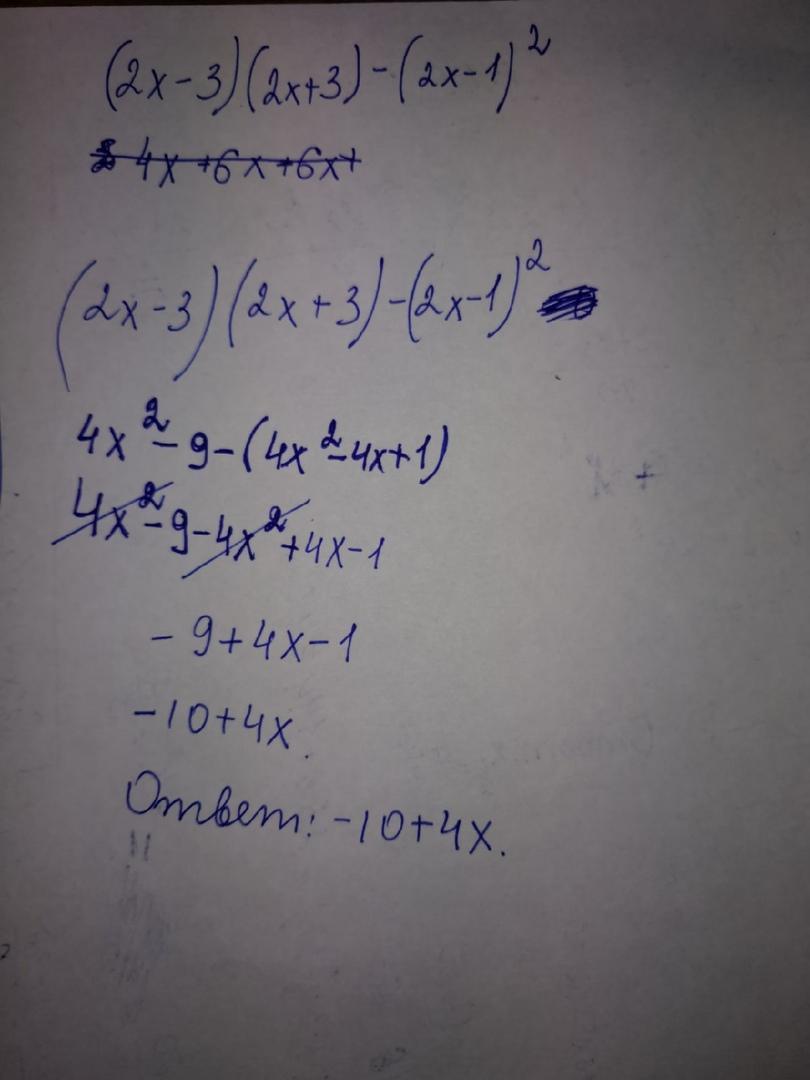 (2x-3)(2x+3)-(2x-1)²
4x+6x+6x+
(2x-3)(2x+3)-(2x-1)²
4x²-9-(4x²-4x+1)
4x²-9-4x²+4x-1
-9+4x-1
-10+4x.
Ответ: -10+4x.